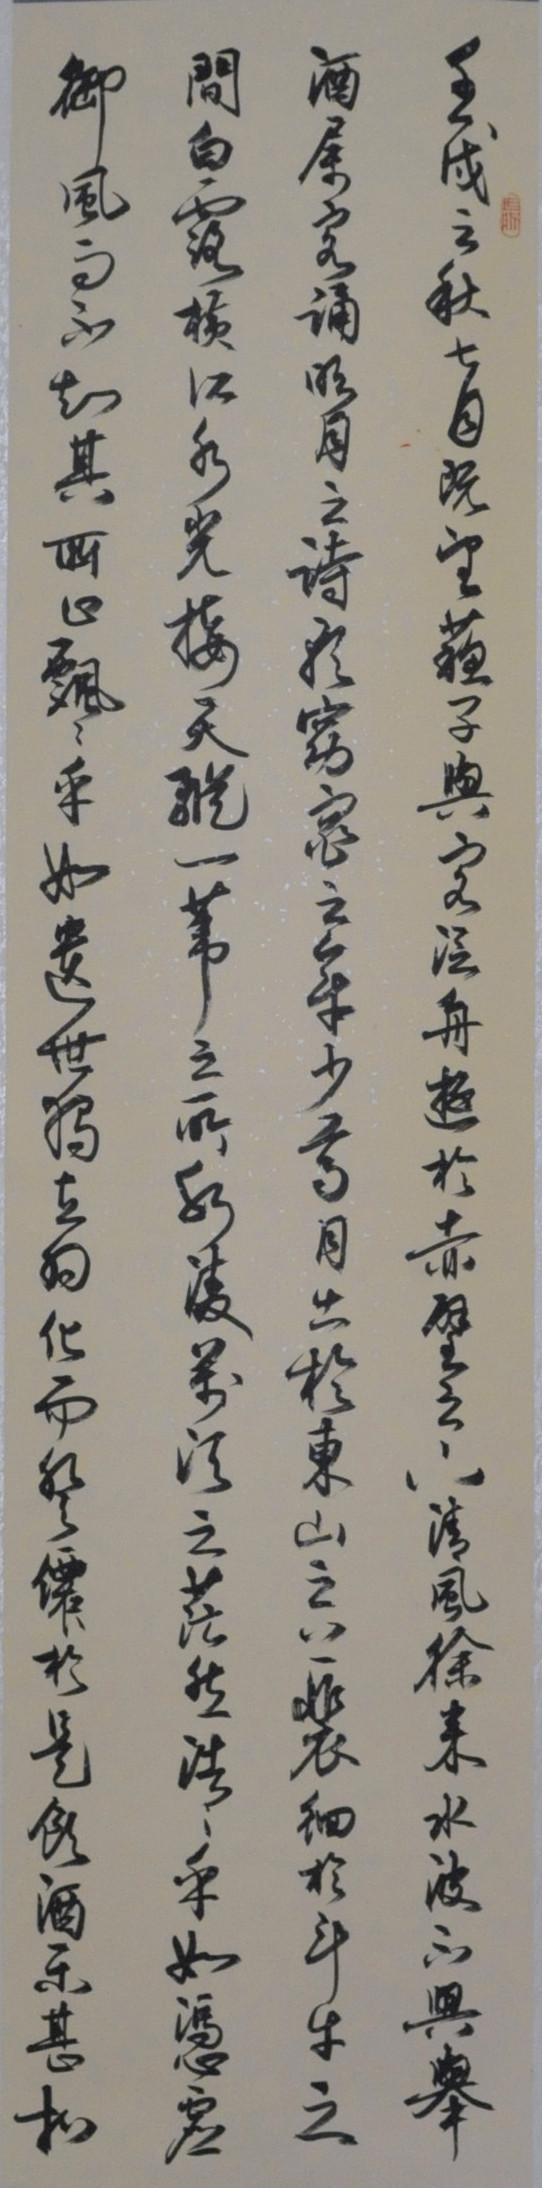 壬戌之秋七月既望蘇子與客泛舟遊於赤壁之下清風徐來水波不興舉
酒屬客誦明月之詩歌窈窕之章少焉月出於東山之上裴徊於斗牛之
間白露橫江水光接天縱一葦之所如凌萬頃之茫然浩〻乎如馮虛
御風而不知其所止飄〻乎如遺世獨立羽化而登僊於是飲酒樂甚扣